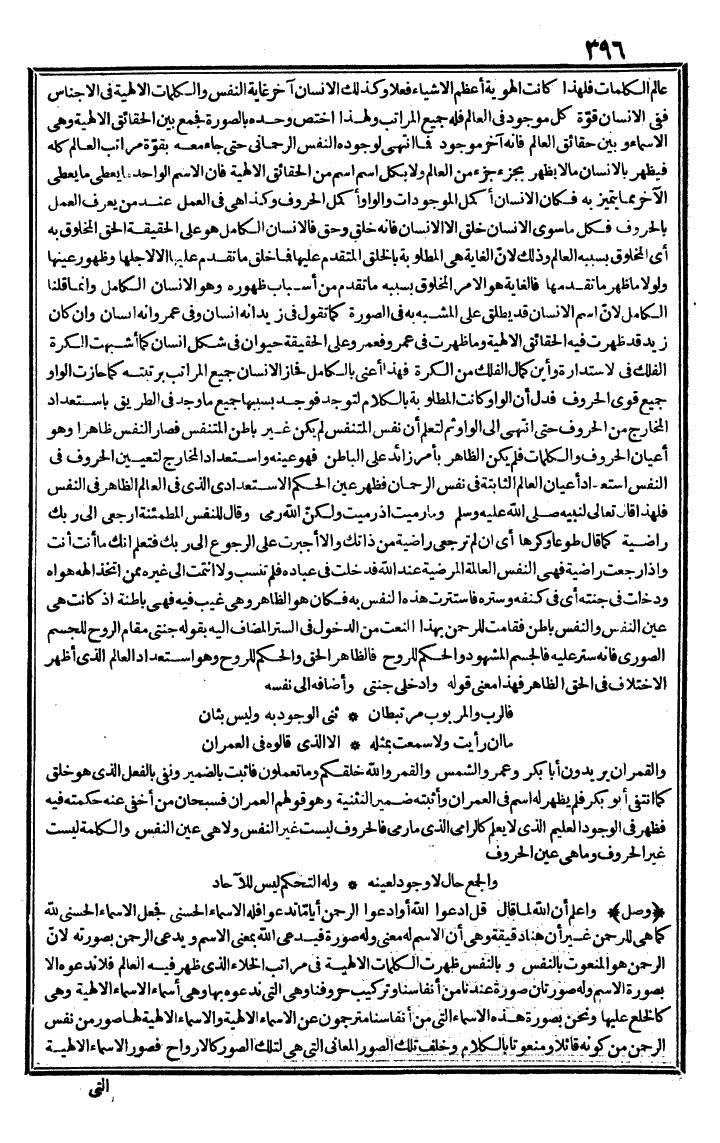 ٣٩٦
عالم الكلمات فلهذا كانت الهوية أعظم الاشياء فعلا وكذلك الانسان آخر غاية النفس والكلمات الالهية فى الاجناس
ففى الانسان قوّة كل موجود فى العالم فله جميع المراتب ولهذا اختص وحده بالصورة فجمع بين الحقائق الالهية وهى
الاسماء وبين حقائق العالم فانه آخر موجود فما انتهى لوجوده النفس الرحمانى حتى جاء معه بقوّة مراتب العالم كله
فيظهر بالانسان مالا يظهر بجزء جزء من العالم ولا بكل اسم اسم من الحقائق الالهية فان الاسم الواحد ما يعطى ما يعطى
الآخر مما يتميز به فكان الانسان أكمل الموجودات والواو أكمل الحروف وكذا هى فى العمل عند من يعرف العمل
بالحروف فكل ماسوى الانسان خلق الا الانسان فانه خلق وحق فالانسان الكامل هو على الحقيقة الحق المخلوق به
أى المخلوق بسببه العالم وذلك لانّ الغاية هى المطلوبة بالخلق المتقدم عليها فما خلق ما تقدم عليها الا لاجلها وظهور عينها
ولولا ما ظهر ما تقدمها فالغاية هو الامر المخلوق بسببه ما تقدم من أسباب ظهوره وهو الانسان الكامل وانما قلنا
الكامل لانّ اسم الانسان قد يطلق على المشبه به فى الصورة كما تقول فى زيد انه انسان وفى عمرو انه انسان وان كان
زيد قد ظهرت فيه الحقائق الالهية وما ظهرت فى عمرو فعمرو على الحقيقة حيوان فى شكل انسان كما أشبهت الكرة
الفلك فى لاستدارة وأين كمال الفلك من الكرة فهذا أعنى بالكامل فحاز الانسان جميع المراتب برتبته كما حازت الواو
جميع قوى الحروف فدل أن الواو كانت المطلوبة بالكلام لتوجد فوجد بسببها جميع ما وجد فى الطريق باستعداد
المخارج من الحروف حتى انتهى الى الواو ثم لتعلم أن نفس المتنفس لم يكن غير باطن المتنفس فصار النفس ظاهرا وهو
أعيان الحروف والكلمات فلم يكن الظاهر بأمر زائد على الباطن فهو عينه واستعداد المخارج لتعيين الحروف فى
النفس استعداد أعيان العالم الثابتة فى نفس الرحمان فظهر عين الحكم الاستعدادى الذى فى العالم الظاهر فى النفس
فلهذا قال تعالى لنبيه صلى الله عليه وسلم وما رميت اذ رميت ولكنّ الله رمى وقال للنفس المطمئنة ارجعى الى ربك
راضية كما قال طوعا وكرها أى ان لم ترجعى راضية من ذاتك والا أجبرت على الرجوع الى ربك فتعلم انك ما أنت أنت
واذا رجعت راضية فهى النفس العالمة المرضية عند الله فدخلت فى عباده فلم تنسب ولا انتمت الى غيره ممن اتخذ الهه هواه
ودخلت فى جنته أى فى كنفه وستره فاستترت هذه النفس به فكان هو الظاهر وهى غيب فيه فهى باطنة اذ كانت هى
عين النفس والنفس باطن فقامت للرحمن بهذا النعت من الدخول فى الستر المضاف اليه بقوله جنتى مقام الروح للجسم
الصورى فانه ستر عليه فالجسم المشهود والحكم للروح فالظاهر الحق والحكم للروح وهو استعداد العالم الذى أظهر
الاختلاف فى الحق الظاهر فهذا معنى قوله وادخلى جنتى وأضافه الى نفسه
فالرب والمربوب مرتبطان * ثنى الوجود به وليس بثان
ما ان رأيت ولا سمعت بمثله * الا الذى قالوه فى العمران
والقمران يريدون أبا بكر وعمر والشمس والقمر والله خلقكم وما تعملون فاثبت بالضمير ونفى بالفعل الذى هو خلق
كما انتفى أبو بكر فلم يظهر له اسم فى العمران وأثبته ضمير التثنية وهو قولهم العمران فسبحان من أخفى عنه حكمته فيه
فظهر فى الوجود العليم الذى لا يعلم كالرامى الذى ما رمى فالحروف ليست غير النفس ولا هى عين النفس والكلمة ليست
غير الحروف وما هى عين الحروف
والجمع حال لا وجود لعينه * وله التحكم ليس للآحاد
﴿وصل﴾ واعلم أن الله لما قال قل ادعوا الله أو ادعوا الرحمن أيامّا تدعوا فله الاسماء الحسنى فجعل الاسماء الحسنى لله
كما هى للرحمن غير أن هنا دقيقة وهى أن الاسم له معنى وله صورة فيدعى الله بمعنى الاسم ويدعى الرحمن بصورته لانّ
الرحمن هو المنعوت بالنفس و بالنفس ظهرت الكلمات الالهية فى مراتب الخلاء الذى ظهر فيه العالم فلا ندعوه الا
بصورة الاسم وله صورتان صورة عندنا من أنفاسنا وتركيب حروفنا وهى التى ندعوه بها وهى أسماء الاسماء الالهية وهى
كالخلع عليها ونحن بصورة هذه الاسماء التى من أنفاسنا مترجمون عن الاسماء الالهية والاسماء الالهية لها صور من نفس
الرحمن من كونه قائلا ومنعوتا بالكلام وخلف تلك الصور المعانى التى هى لتلك الصور كالارواح فصور الاسماء الالهية
التى